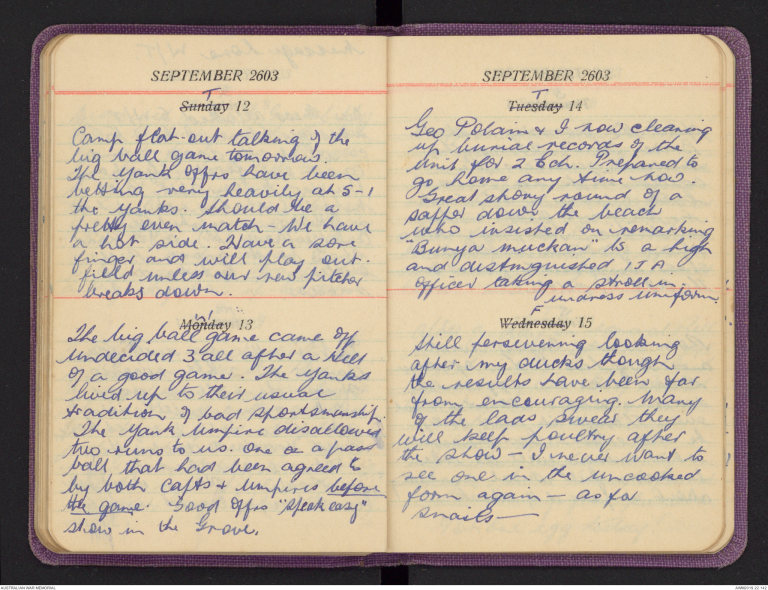 SEPTEMBER 2603
T
Sunday 12
Camp flat-out talking of the
big ball game tomorrow.
The Yank Offrs have been
betting very heavily at 5-1
the Yanks. Should be a
pretty even match - We have
a hot side. Have a sore
finger and will play out-
field unless our new pitcher
breaks down.
Monday 13
The big ball game came off
undecided 3 all after a hell
of a good game. The Yanks
lived up to their usual
tradition of bad sportsmanship.
The Yank Umpire disallowed
two runs to us. One on a pass
ball that had been agreed to
by both Capts & Umpires before
the game. Good Offrs "Speak easy"
show in the Grove.
SEPTEMBER 2603
T
Tuesday 14
Geo Polain & I now cleaning
up burial records of the
Unit for 2 Ech. Prepared to
go home any time now.
Great story round of a
sapper down the beach
who insisted on remarking
"Bunya muckan" to a high
and distinguished IJA
officer taking a stroll in
undress uniform.
F
Wednesday 15
Still persevering looking
after my ducks though
the results have been far
from encouraging. Many
of the lads swear they
will keep poultry after
the show - I never want to
see one in the uncooked
form again - as for
snails -
AUSTRALIAN WAR MEMORIAL